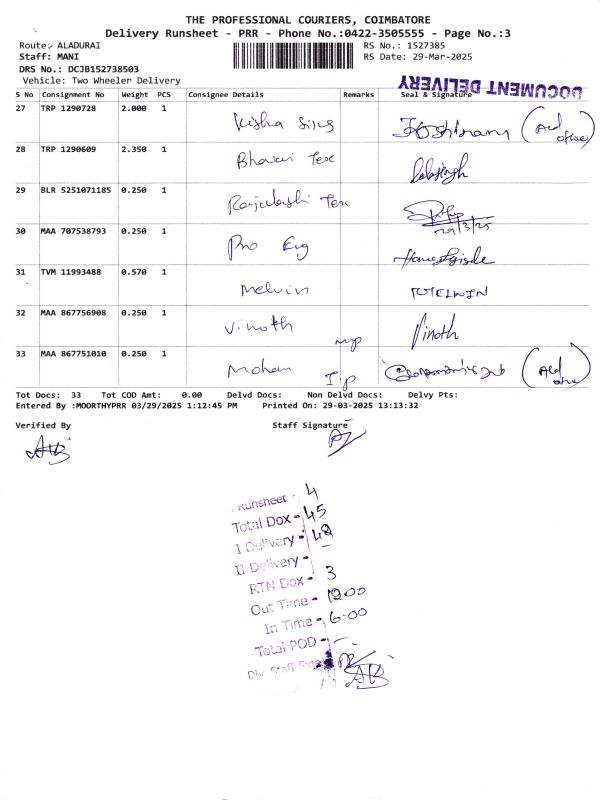 THE PROFESSIONAL COURIERS, COIMBATORE
Delivery Runsheet - PRR - Phone No.:0422-3505555 - Page No.:3
Route:- ALADURAI RS No.: 1527385
Staff: MANI RS Date: 29-Mar-2025
DRS No.: DCJB152738503
Vehicle: Two Wheeler Delivery
DOCUMENT DELIVERY
S No Consignment No Weight PCS Consignee Details Remarks Seal & Signature
27 TRP 1290728 2.000 1
28 TRP 1290609 2.350 1 Bhavani Tex
29 BLR 5251071185 0.250 1 Rajalakshi Tex 29/3/25
30 MAA 707538793 0.250 1 Pro Eng
31 TVM 11993488 0.570 1 Melvin
32 MAA 867756908 0.250 1 Vinoth Vinoth
33 MAA 867751010 0.250 1 Mohan
Tot Docs: 33 Tot COD Amt: 0.00 Delvd Docs: Non Delvd Docs: Delvy Pts:
Entered By :MOORTHYPRR 03/29/2025 1:12:45 PM Printed On: 29-03-2025 13:13:32
Verified By Staff Signature
Runsheet - 4
Total Dox - 45
I Delivery - 42
II Delivery -
RTN Dox - 3
Out Time - 12.00
In Time - 6.00
Total POD -
Dlv Staff Sign